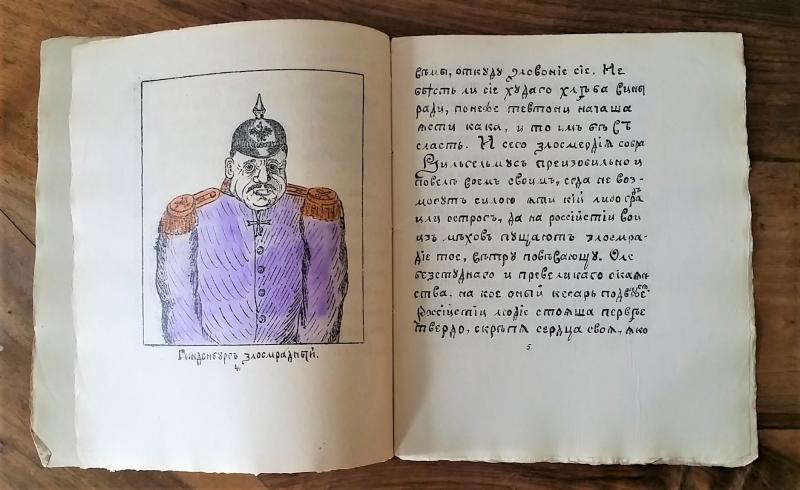 Гинденбургъ злосмрадный.
4.
вѣмы, откуду зловоніе сіе. Не
вѣсть ли сіе худаго хлѣба вины
ради, понеже тевтони начаша
ясти кака, и то имъ бѣ съ
сласть. И сего злосмердія собра
Вильгельмусъ преизобильно и
повелѣ воемъ своимъ, егда не воз-
могутъ силою яти кій либо градъ
или острогъ, да на россійстіи вои
изъ мѣховъ пущаютъ злосмра-
діе тое, вѣтру повѣвающу. Оле
безстуднаго и превеликаго окаян-
ства, на кое оный кесарь подвижеся
Россійстіи людіе стояша первѣе
твердо, скрѣпя сердца своя, яко
5.